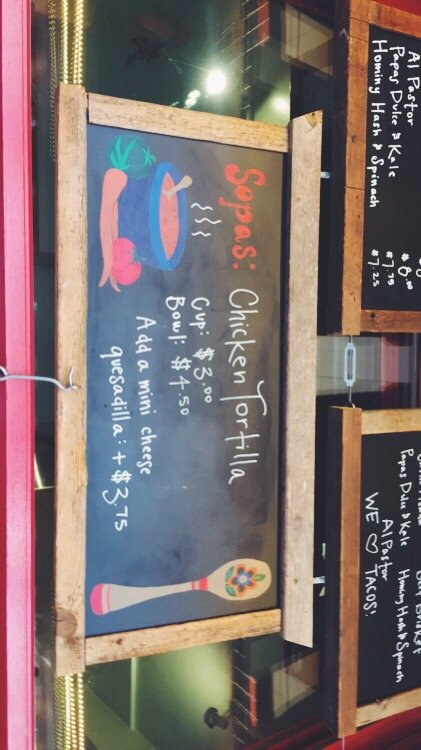 Sopas: Chicken Tortilla
Cup: $3.00
Bowl: $4.50
Add a mini cheese
quesadilla: + $3.75
Al Pastor $8.00
Papas Dulce & Kale $7.75
Hominy Hash & Spinach $7.25
Papas Dulce & Kale Hominy Hash & Spinach
Al Pastor
WE TACOS!